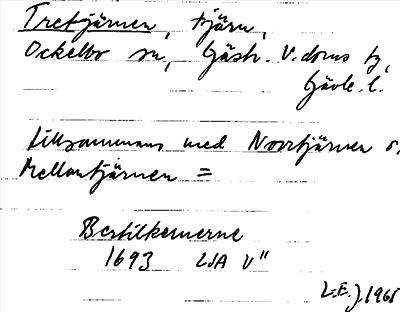 Tretjärnen, tjärn,
Ockelbo sn, Gästr. V. doms tg,
Gävle l.
tillsammans med Norrtjärnen o.
Mellantjärnen =
Bertilkernerne
1693 LSA V"
L.E.J. 1965